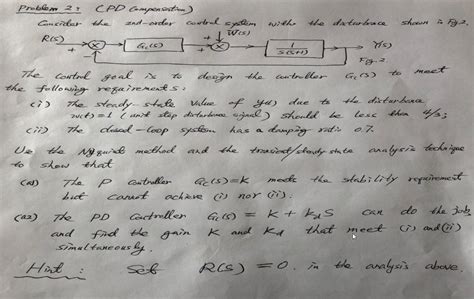 Problem 2: (PD Compensation)
Consider the 2nd-order control system with the disturbance shown in Fig. 2,
R(s) + Gc(s) + W(s) 1/s(s+1) Y(s)
Fig. 2
The control goal is to design the controller Gc(s) to meet
the following requirements:
(i) The steady-state value of y(t) due to the disturbance
w(t)=1 (unit step disturbance signal) should be less than 4/3;
(ii) The closed-loop system has a damping ratio 0.7.
Use the Nyquist method and the transient/steady-state analysis technique
to show that
(a1) The P Controller Gc(s)=K meets the stability requirement
but cannot achieve (i) nor (ii).
(a2) The PD Controller Gc(s) = K + kdS can do the job
and find the gain K and Kd that meet (i) and (ii)
simultaneously.
Hint: Set R(s) = 0. in the analysis above.